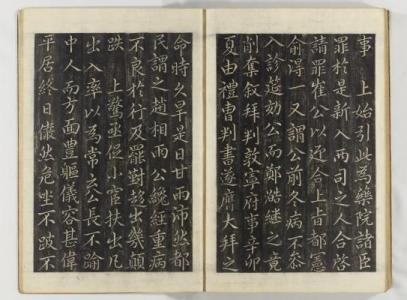 事　上始引此為藥院諸臣
罪於是新入兩司之人合啓
請罪崔公以迎合上旨都憲
俞得一又謂公前冬病不忝
入診筵劾公而鄭澔繼之竟
削奪叙拜判敦寧府事辛卯
夏由禮曹判書遂膺大拜之
命時久旱是日甘雨沛然都
民謂之趙相雨公纔經重病
不良於行及罷對趍出幾顛
跌　上驚亟促小宦扶出凡
出入率以為常云公長不踰
中人而方面豐軀儀容甚偉
平居終日儼然危坐不跛不